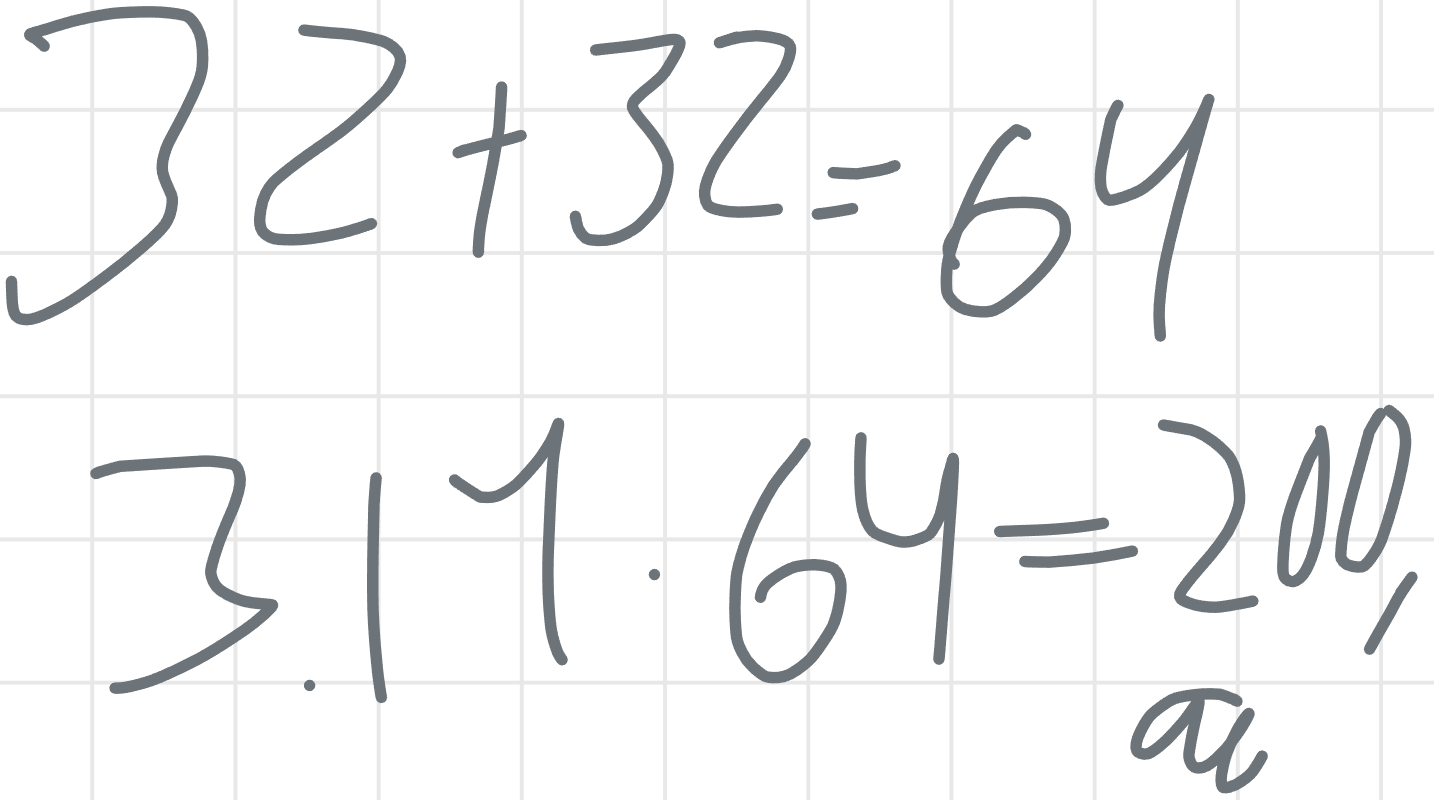 32+32=64
3.14·64=200,